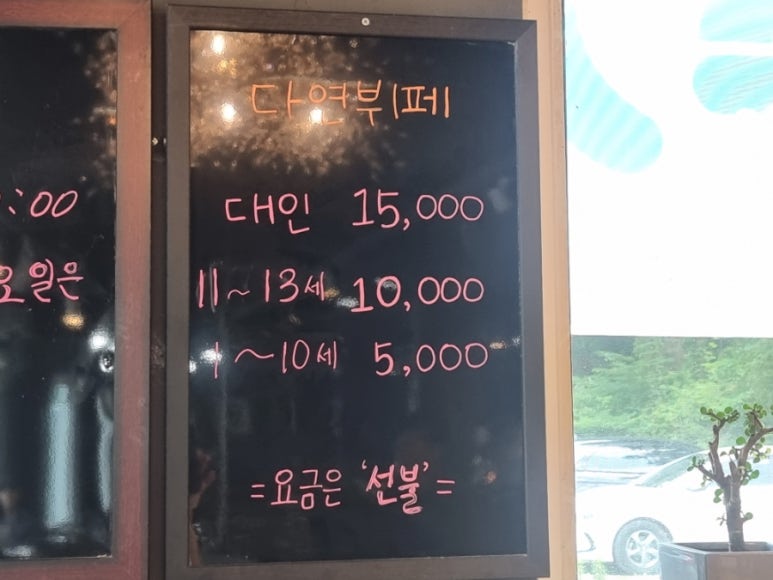 :00
요일은
다연뷔페
대인 15,000
11~13세 10,000
1~10세 5,000
=요금은 '선불'=